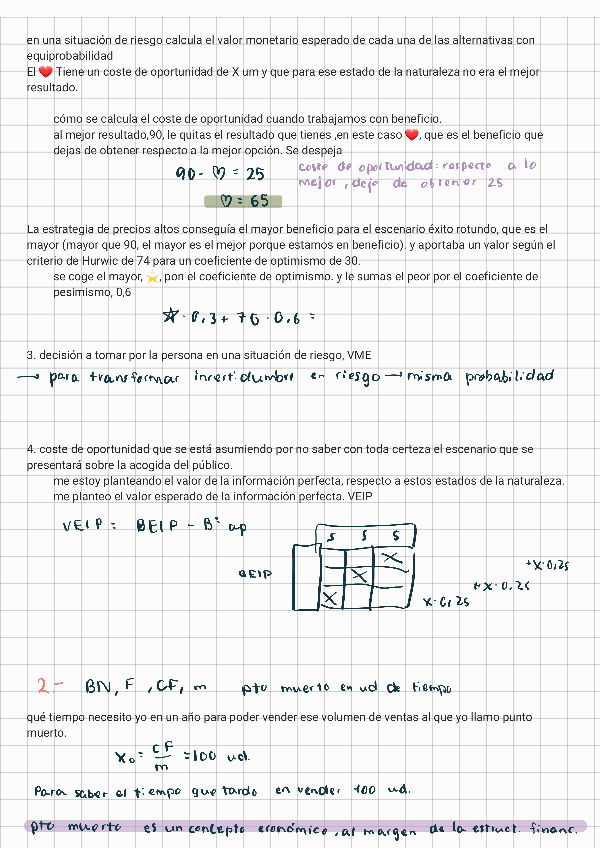 en una situación de riesgo calcula el valor monetario esperado de cada una de las alternativas con
equiprobabilidad
El ❤️ Tiene un coste de oportunidad de X um y que para ese estado de la naturaleza no era el mejor
resultado.
cómo se calcula el coste de oportunidad cuando trabajamos con beneficio.
al mejor resultado,90, le quitas el resultado que tienes ,en este caso ❤️, que es el beneficio que
dejas de obtener respecto a la mejor opción. Se despeja
90 - ♡ = 25
coste de oportunidad: respecto a lo
mejor, dejo de obtener 25
♡ = 65
La estrategia de precios altos conseguía el mayor beneficio para el escenario éxito rotundo, que es el
mayor (mayor que 90, el mayor es el mejor porque estamos en beneficio). y aportaba un valor según el
criterio de Hurwic de 74 para un coeficiente de optimismo de 30.
se coge el mayor, ⭐, pon el coeficiente de optimismo. y le sumas el peor por el coeficiente de
pesimismo, 0,6
☆ · 0,3 + 70 · 0,6 =
3. decisión a tomar por la persona en una situación de riesgo, VME
→ para transformar incertidumbre en riesgo → misma probabilidad
4. coste de oportunidad que se está asumiendo por no saber con toda certeza el escenario que se
presentará sobre la acogida del público.
me estoy planteando el valor de la información perfecta, respecto a estos estados de la naturaleza.
me planteo el valor esperado de la información perfecta. VEIP
VEIP = BEIP - Bº op
S S S
X
BEIP X
X
+X·0,25
+X·0,25
X·0,25
2- BN, F, CF, m pto muerto en ud de tiempo
qué tiempo necesito yo en un año para poder vender ese volumen de ventas al que yo llamo punto
muerto.
X₀ = CF/m = 100 ud.
Para saber el tiempo que tardo en vender 100 ud.
pto muerto es un concepto económico, al margen de la estruct. financ.